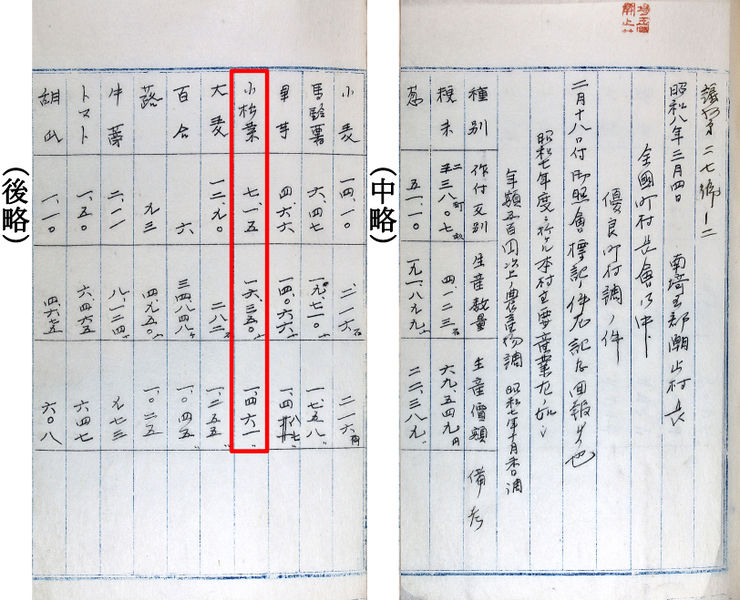 昭和八年三月四日 南埼玉郡潮止村長
全國町村長會御中
優良町村調ノ件
二月十八日付御照會標記ノ件左記及回報候也
昭和七年度ニ於ケル本村主要産業左ノ如シ
年額五百圓以上ノ農産物調 昭和七年十月末日調
種別 作付反別 生産数量 生産價額 備考
粳米 二三八〇七 四一二三石 六九、五四九円
葱 五一、一〇 一九一、八九九 二二、三八九
(中略)
小麦 一四、一〇 二一六石 二一六円
馬鈴薯 六、四七 一、七五八
里芋 四、六六 一四〇六六
小松菜 七一、五 一六、三五〇 一、四六一
大麦 一三、九〇 二八二 一、二五五
百合 六 三四八四八 一、〇四五
蕗 九三 四、九五〇 一、〇二五
牛蒡 二、一一 八、一二四 九七三
トマト 一、五〇 六、四六五 六四七
胡瓜 一、一〇 四、六七五 六〇八
(後略)